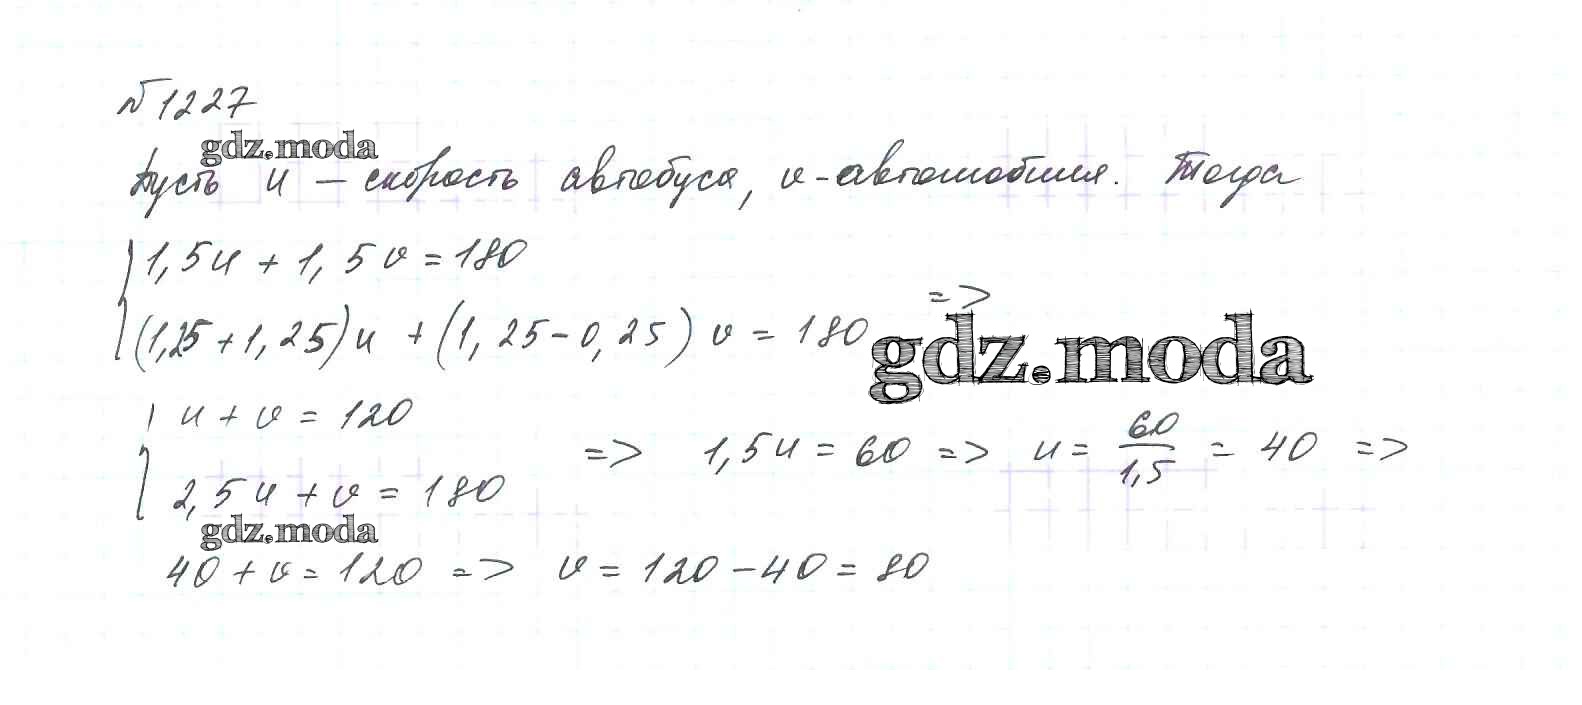 №1227
gdz.moda
Пусть u – скорость автобуса, v-автомобиля. Тогда
1,5u + 1,5v = 180
(1,25 + 1,25)u + (1,25 – 0,25) v = 180 =>
gdz.moda
u + v = 120
2,5u + v = 180 => 1,5u = 60 => u = 60/1,5 = 40 =>
gdz.moda
40 + v = 120 => v = 120 – 40 = 80